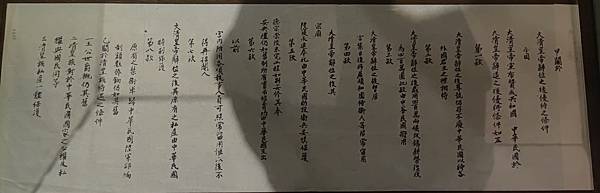 甲關於
大清皇帝辭位之後優待之條件
今因
大清皇帝宣布贊成共和國 中華民國於
大清皇帝辭退之後優待條件如左
第一款
大清皇帝辭位之後尊號仍存不廢中華民國以待各
外國君主之禮相待
第二款
大清皇帝辭位之後歲用四百萬兩俟改鑄新幣後改
為四百萬圓此款由中華民國撥用
第三款
大清皇帝辭位之後暫居
宮禁日後移居頤和園侍衛人等照常留用
第四款
大清皇帝辭位之後其
宗廟
陵寢永遠奉祀由中華民國酌設衛兵妥慎保護
第五款
德宗崇陵未完工程如制妥修其奉
安典禮仍如舊制所有實用經費均由中華民國支出
第六款
以前
宮內所用各項執事人員可照常留用惟以後不
得再招閹人
第七款
大清皇帝辭位之後其原有之私產由中華民國
特別保護
第八款
原有之禁衛軍歸中華民國陸軍部編
制額數俸餉仍如其舊
乙關於清皇族待遇之條件
一王公世爵概仍其舊
二清皇族對於中華民國國家之公權及私
權與國民同等
三清皇族私產一體保護